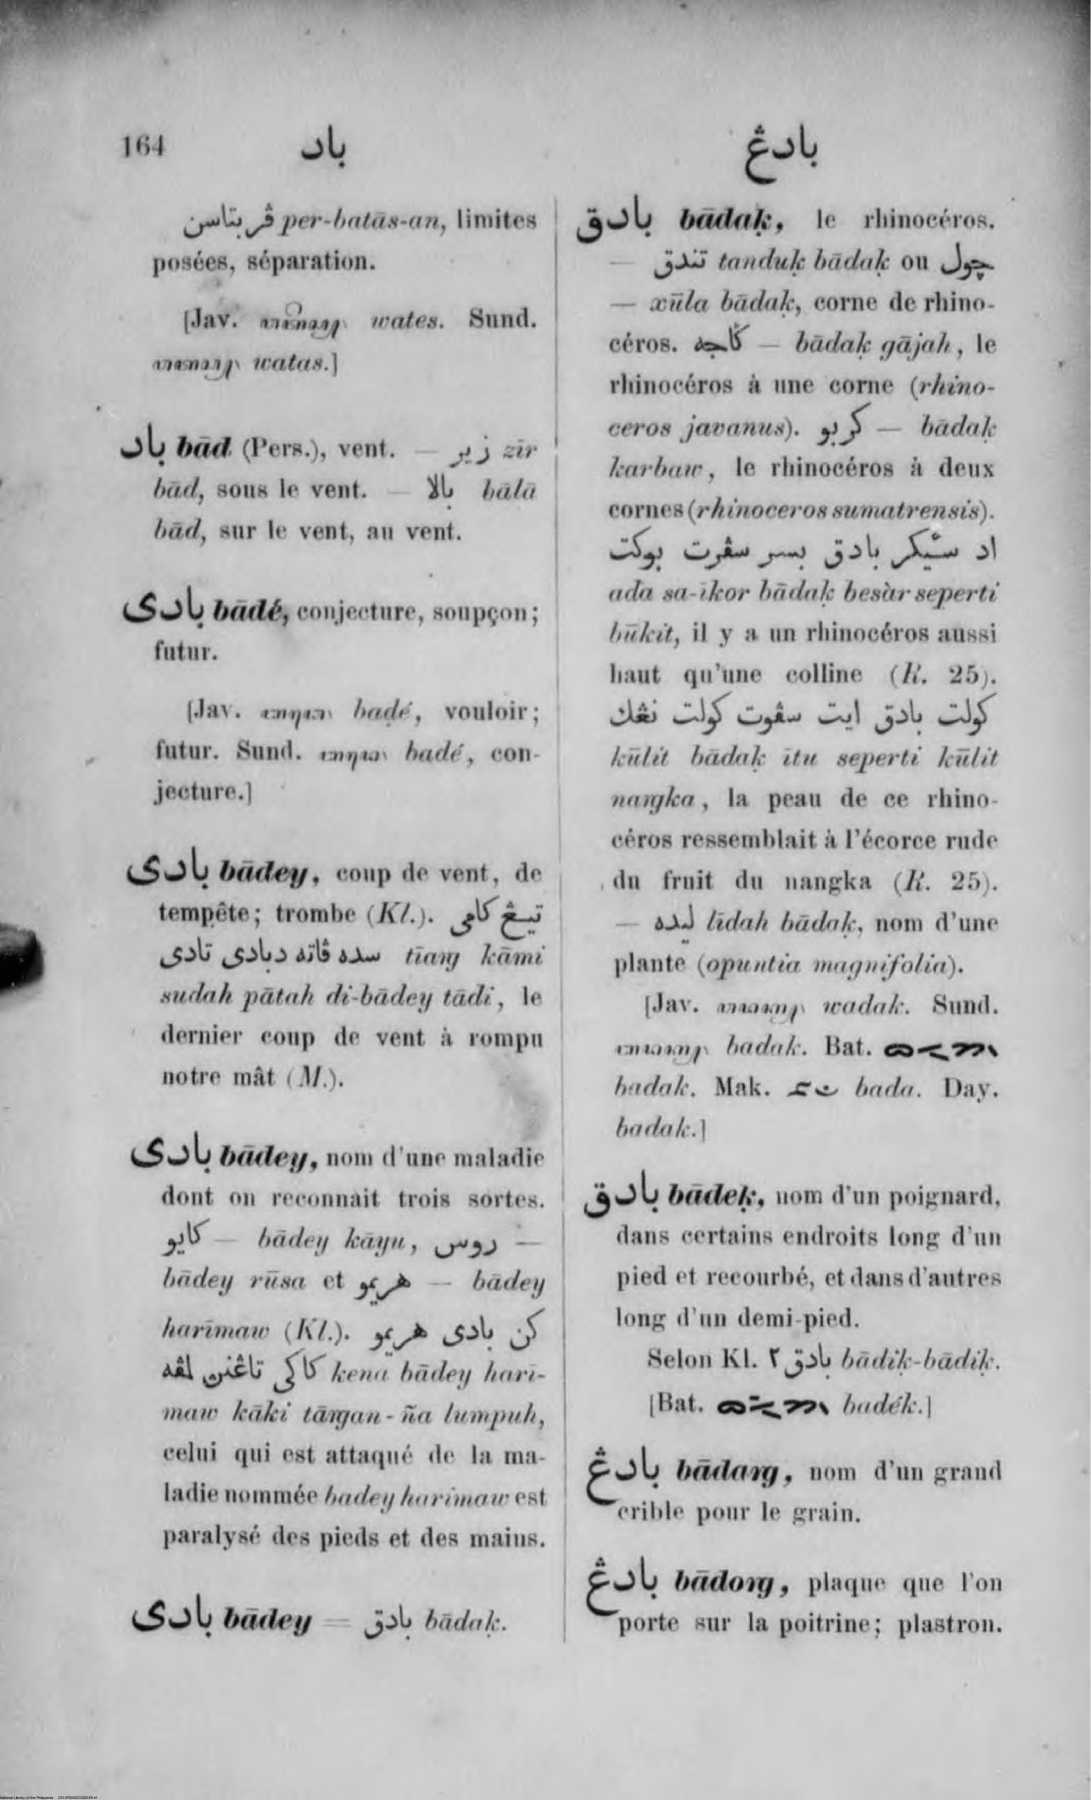 164
باد
بادڠ
ڤربتاسن per-batās-an, limites
posées, séparation.
[Jav. wates. Sund.
watas.]
باد bād (Pers.), vent. — زير zīr
bād, sous le vent. — بالا bālā
bād, sur le vent, au vent.
بادى bādé, conjecture, soupçon;
futur.
[Jav. badé, vouloir;
futur. Sund. badé, con-
jecture.]
بادى bādey, coup de vent, de
tempête; trombe (Kl.). تيڠ كامى
سده ڤاته دبادى تادى tīaŋ kāmi
sudah pātah di-bādey tādi, le
dernier coup de vent à rompu
notre mât (M.).
بادى bādey, nom d'une maladie
dont on reconnait trois sortes.
كايو — bādey kāyu, روس —
bādey rūsa et هريمو — bādey
harīmaw (Kl.). كن بادى هريمو
كاكى تاڠنن لمڤه kena bādey harī-
maw kāki tāŋan-ña lumpuh,
celui qui est attaqué de la ma-
ladie nommée badey harīmaw est
paralysé des pieds et des mains.
بادى bādey = بادق bādaḳ.
بادق bādaḳ, le rhinocéros.
— تندق tanduḳ bādaḳ ou چول
— xūla bādaḳ, corne de rhino-
céros. ڬاجه — bādaḳ gājah, le
rhinocéros à une corne (rhino-
ceros javanus). كربو — bādaḳ
karbaw, le rhinocéros à deux
cornes (rhinoceros sumatrensis).
اد سئيكر بادق بسر سڤرت بوكت
ada sa-īkor bādaḳ besàr seperti
būkit, il y a un rhinocéros aussi
haut qu'une colline (R. 25).
كولت بادق ايت سڤرت كولت نڠك
kūlit bādaḳ ītu seperti kūlit
naŋka, la peau de ce rhino-
céros ressemblait à l'écorce rude
du fruit du nangka (R. 25).
— ليده līdah bādaḳ, nom d'une
plante (opuntia magnifolia).
[Jav. wadak. Sund.
badak. Bat.
badak. Mak. bada. Day.
badak.]
بادق bādeḳ, nom d'un poignard,
dans certains endroits long d'un
pied et recourbé, et dans d'autres
long d'un demi-pied.
Selon Kl. بادق٢ bādiḳ-bādiḳ.
[Bat. badék.]
بادڠ bādaŋ, nom d'un grand
crible pour le grain.
بادڠ bādoŋ, plaque que l'on
porte sur la poitrine; plastron.